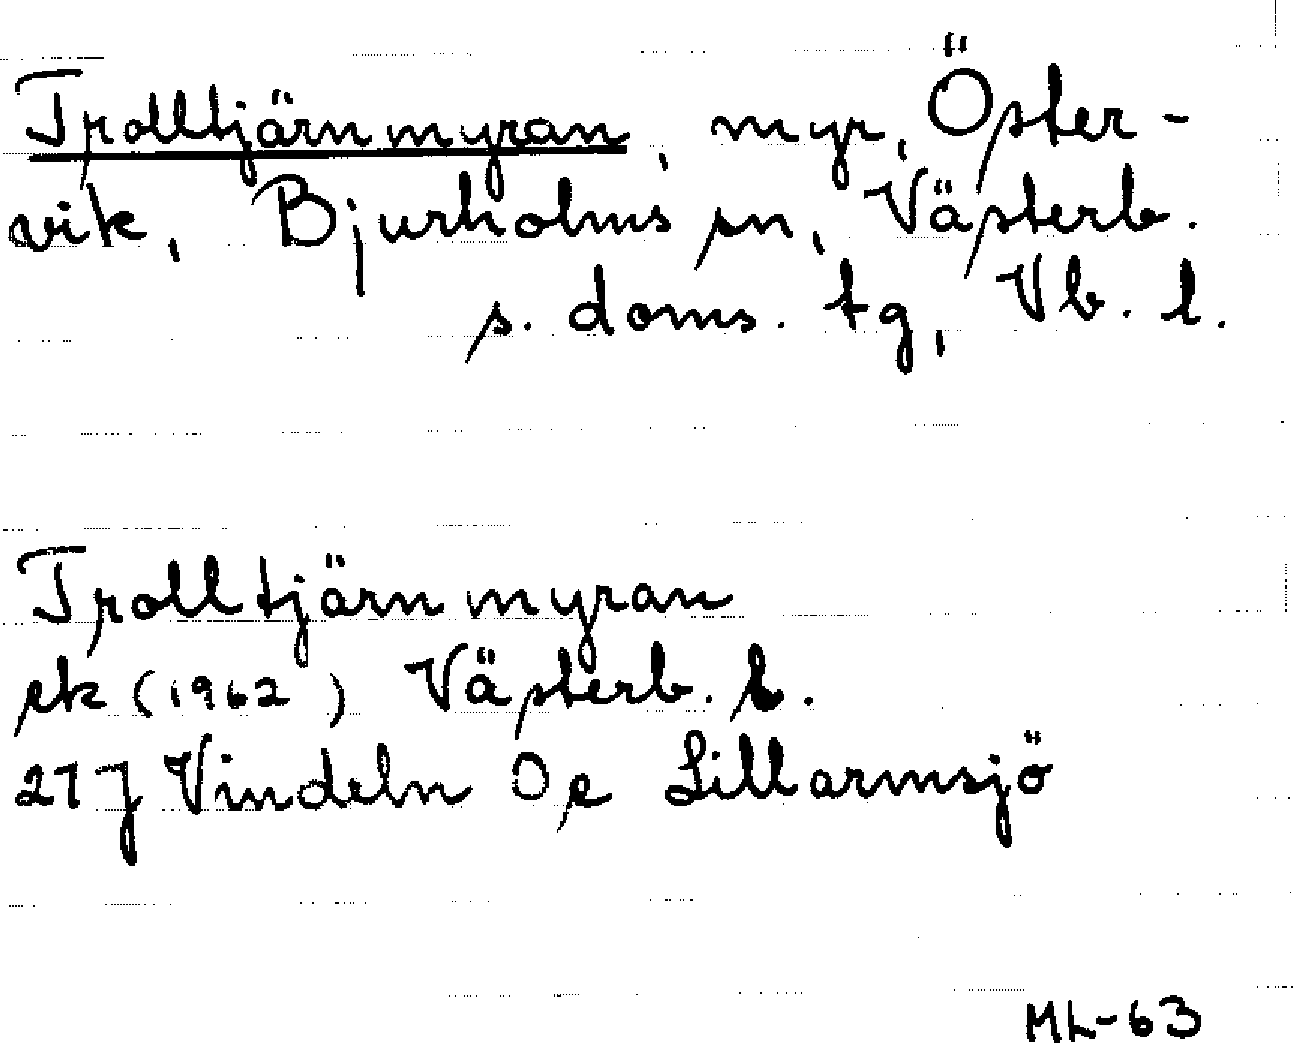 Trolltjärnmyran, myr, Öster-
vik, Bjurholms sn, Västerb.
s. doms. tg, Vb. l.
Trolltjärnmyran
ek (1962) Västerb. l.
21 J Vindeln Oe Lillarmsjö
ML-63